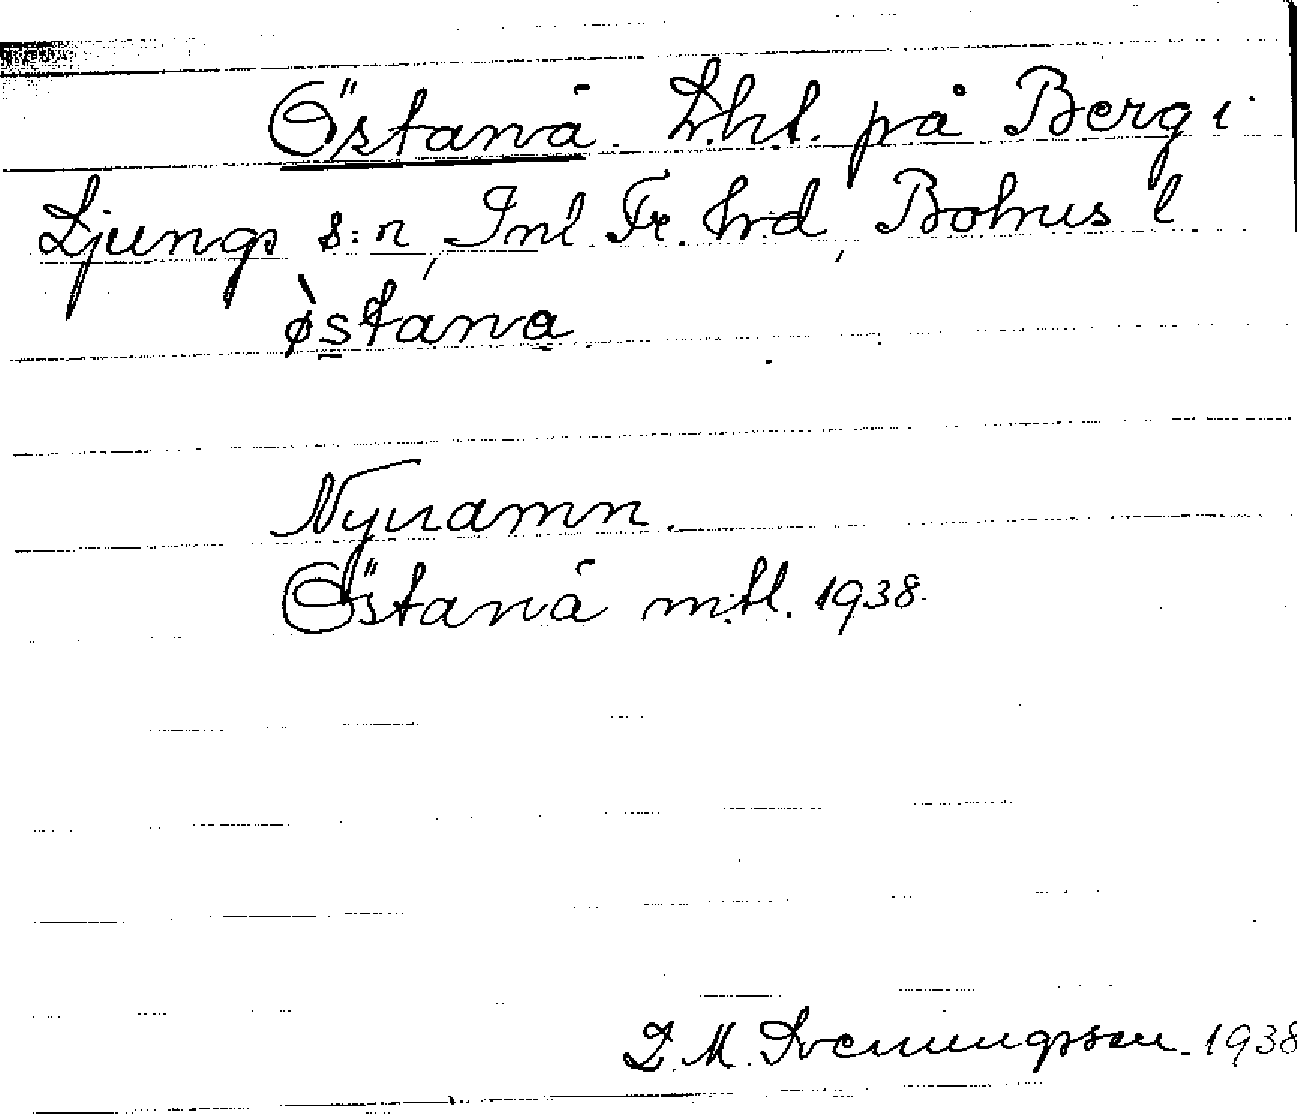 Östanå. Lht. på Berg i
Ljungs s:n, Inl. Fr. hrd, Bohus l
østana
Nynamn.
Östanå mtl. 1938.
D. M. Svenungsson. 1938